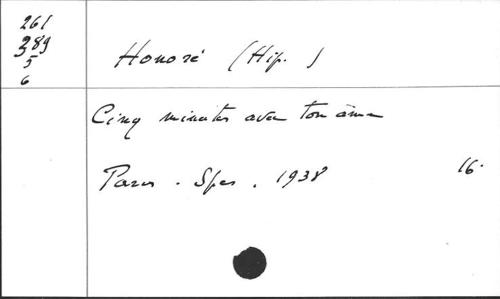 261
389
5
6
Honoré (Hip.)
Cinq minutes avec ton âme
Paris. Spes. 1938 16.